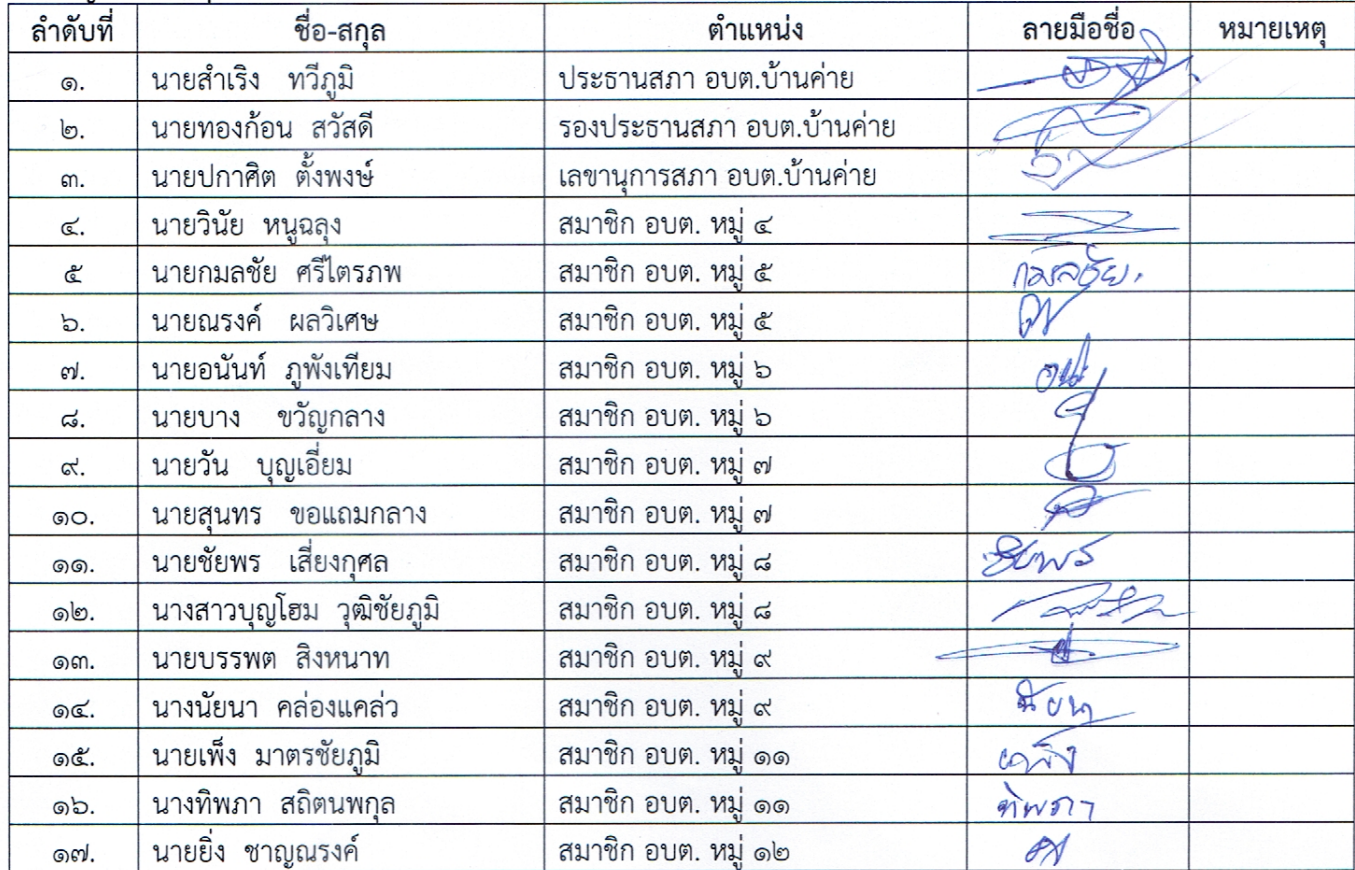 ลำดับที่ ชื่อ-สกุล ตำแหน่ง ลายมือชื่อ หมายเหตุ
๑. นายสำเริง ทวีภูมิ ประธานสภา อบต.บ้านค่าย
๒. นายทองก้อน สวัสดี รองประธานสภา อบต.บ้านค่าย
๓. นายปกาศิต ตั้งพงษ์ เลขานุการสภา อบต.บ้านค่าย
๔. นายวินัย หนูฉลุง สมาชิก อบต. หมู่ ๔
๕ นายกมลชัย ศรีไตรภพ สมาชิก อบต. หมู่ ๕ กมลชัย
๖. นายณรงค์ ผลวิเศษ สมาชิก อบต. หมู่ ๕
๗. นายอนันท์ ภูพังเทียม สมาชิก อบต. หมู่ ๖
๘. นายบาง ขวัญกลาง สมาชิก อบต. หมู่ ๖
๙. นายวัน บุญเอี่ยม สมาชิก อบต. หมู่ ๗
๑๐. นายสุนทร ขอแถมกลาง สมาชิก อบต. หมู่ ๗
๑๑. นายชัยพร เสี่ยงกุศล สมาชิก อบต. หมู่ ๘ ชัยพร
๑๒. นางสาวบุญโฮม วุฒิชัยภูมิ สมาชิก อบต. หมู่ ๘
๑๓. นายบรรพต สิงหนาท สมาชิก อบต. หมู่ ๙
๑๔. นางนัยนา คล่องแคล่ว สมาชิก อบต. หมู่ ๙ นัยนา
๑๕. นายเพ็ง มาตรชัยภูมิ สมาชิก อบต. หมู่ ๑๑
๑๖. นางทิพภา สถิตนพกุล สมาชิก อบต. หมู่ ๑๑ ทิพภา
๑๗. นายยิ่ง ชาญณรงค์ สมาชิก อบต. หมู่ ๑๒